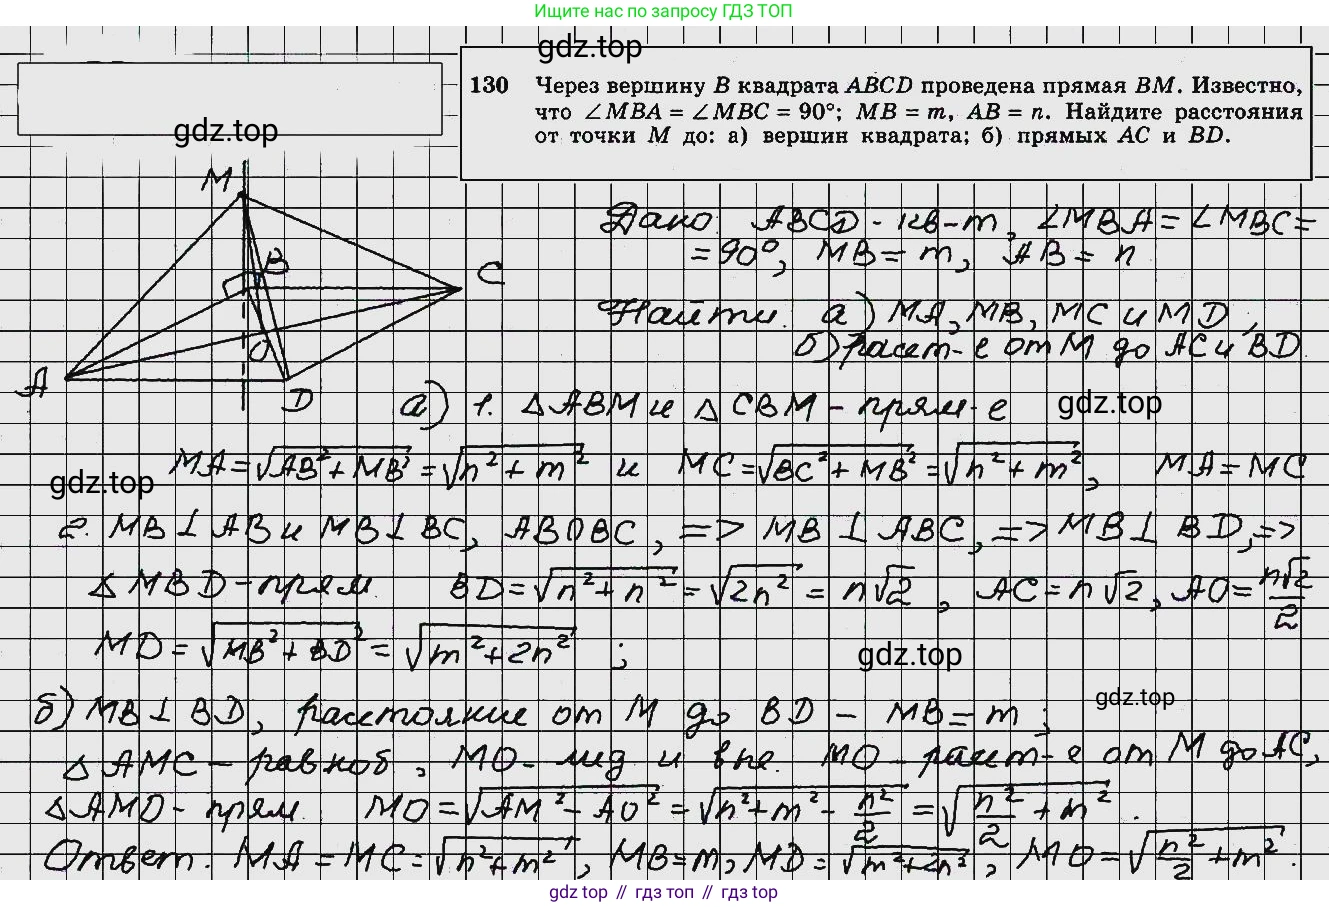 Ищите нас по запросу ГДЗ ТОП
gdz.top
130 Через вершину B квадрата ABCD проведена прямая BM. Известно,
что ∠MBA = ∠MBC = 90°; MB = m, AB = n. Найдите расстояния
от точки M до: а) вершин квадрата; б) прямых AC и BD.
gdz.top
M
B
C
O
A
D
Дано: ABCD - кв-т, ∠MBA = ∠MBC =
= 90°, MB = m, AB = n
Найти: а) MA, MB, MC и MD;
б) расст-е от M до AC и BD.
а) 1. △ABM и △CBM - прям-е
gdz.top
MA = √(AB² + MB²) = √(n² + m²) и MC = √(BC² + MB²) = √(n² + m²), MA = MC
gdz.top
2. MB ⊥ AB и MB ⊥ BC, AB∩BC, => MB ⊥ ABC, => MB ⊥ BD, =>
△MBD - прям. BD = √(n² + n²) = √(2n²) = n√2, AC = n√2, AO = n√2/2
MD = √(MB² + BD²) = √(m² + 2n²);
gdz.top
б) MB ⊥ BD, расстояние от M до BD - MB = m;
gdz.top
△AMC - равноб, MO - мед и выс. MO - расст-е от M до AC,
△AMO - прям. MO = √(AM² - AO²) = √(n² + m² - n²/2) = √(n²/2 + m²).
Ответ: MA = MC = √(n² + m²), MB = m, MD = √(m² + 2n²), MO = √(n²/2 + m²).
gdz top // гдз топ // gdz top